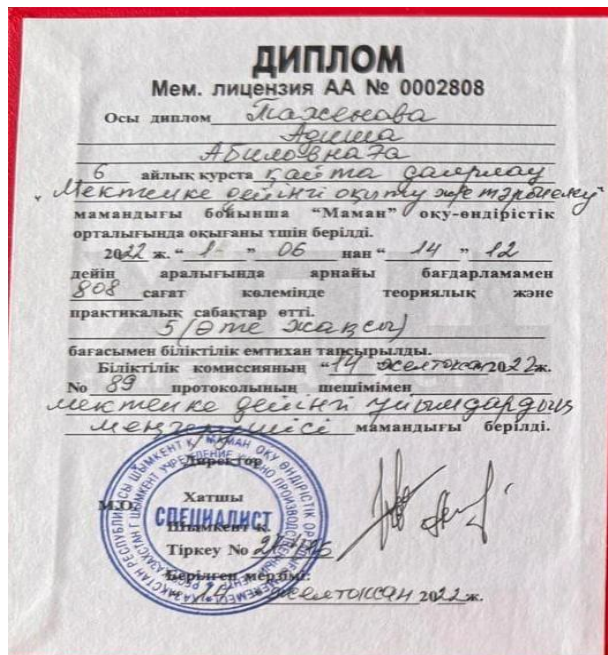 ДИПЛОМ
Мем. лицензия АА № 0002808
Осы диплом Таженова
Адиша
Абиловнаға
6 айлық курста қайта даярлау
"Мектепке дейінгі оқыту және тәрбиелеу"
мамандығы бойынша "Маман" оқу-өндірістік
орталығында оқығаны үшін берілді.
2022 ж. "1" 06 нан "14" 12
дейін аралығында арнайы бағдарламамен
808 сағат көлемінде теориялық және
практикалық сабақтар өтті.
5 (өте жақсы)
бағасымен біліктілік емтихан тапсырылды.
Біліктілік комиссияның "14" желтоқсан 2022ж.
№ 89 протоколының шешімімен
мектепке дейінгі ұйымдардың
меңгерушісі мамандығы берілді.
Директор
Хатшы
М.О.
СПЕЦИАЛИСТ
Шымкент қ.
Тіркеу №
Берілген мерзімі:
14 желтоқсан 2022ж.